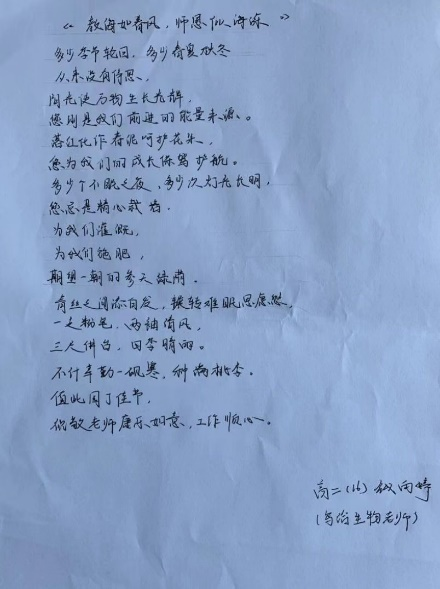 《教诲如春风，师恩似海深》
多少季节轮回，多少春夏秋冬
从来没有停息，
阳光使万物生长光辉，
您则是我们前进的能量来源。
落红化作春泥呵护花朵，
您为我们的成长保驾护航。
多少个不眠之夜，多少次灯光长明，
您总是精心栽培。
为我们灌溉，
为我们施肥，
期望一朝的参天绿荫。
青丝之间添白发，辗转难眠思虑愁，
一支粉笔，两袖清风，
三尺讲台，四季晴雨。
不计辛勤一砚寒，种满桃李。
值此园丁佳节，
祝敬老师康乐如意，工作顺心。
高二(16) 赵雨婷
(写给生物老师)